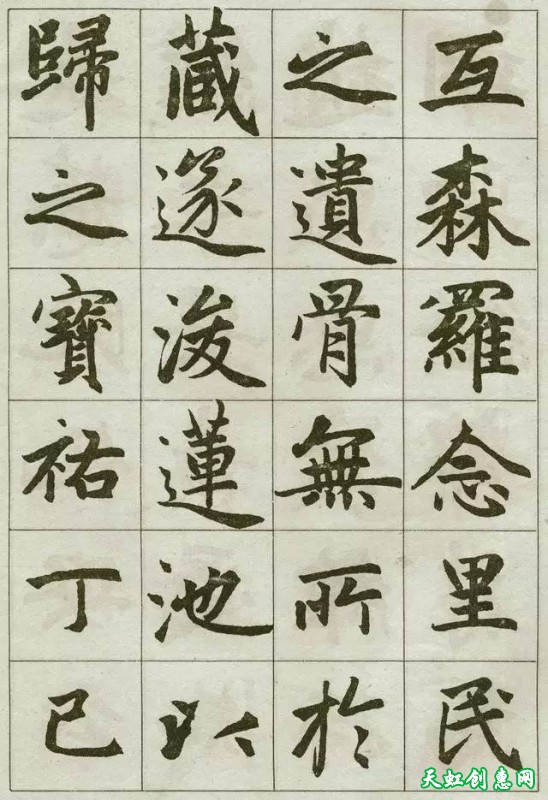 互森羅念里民
之遺骨無所於
藏遂浚蓮池以
歸之寶祐丁巳
天虹创惠网